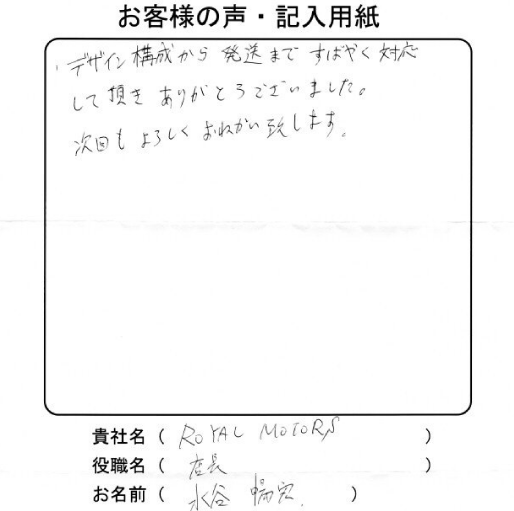 お客様の声・記入用紙
デザイン構成から 発送まで すばやく 対応
して頂き ありがとうございました。
次回も よろしく おねがい致します。
貴社名 ( ROYAL MOTORS )
役職名 ( 店長 )
お名前 ( 水谷 暢宏 )